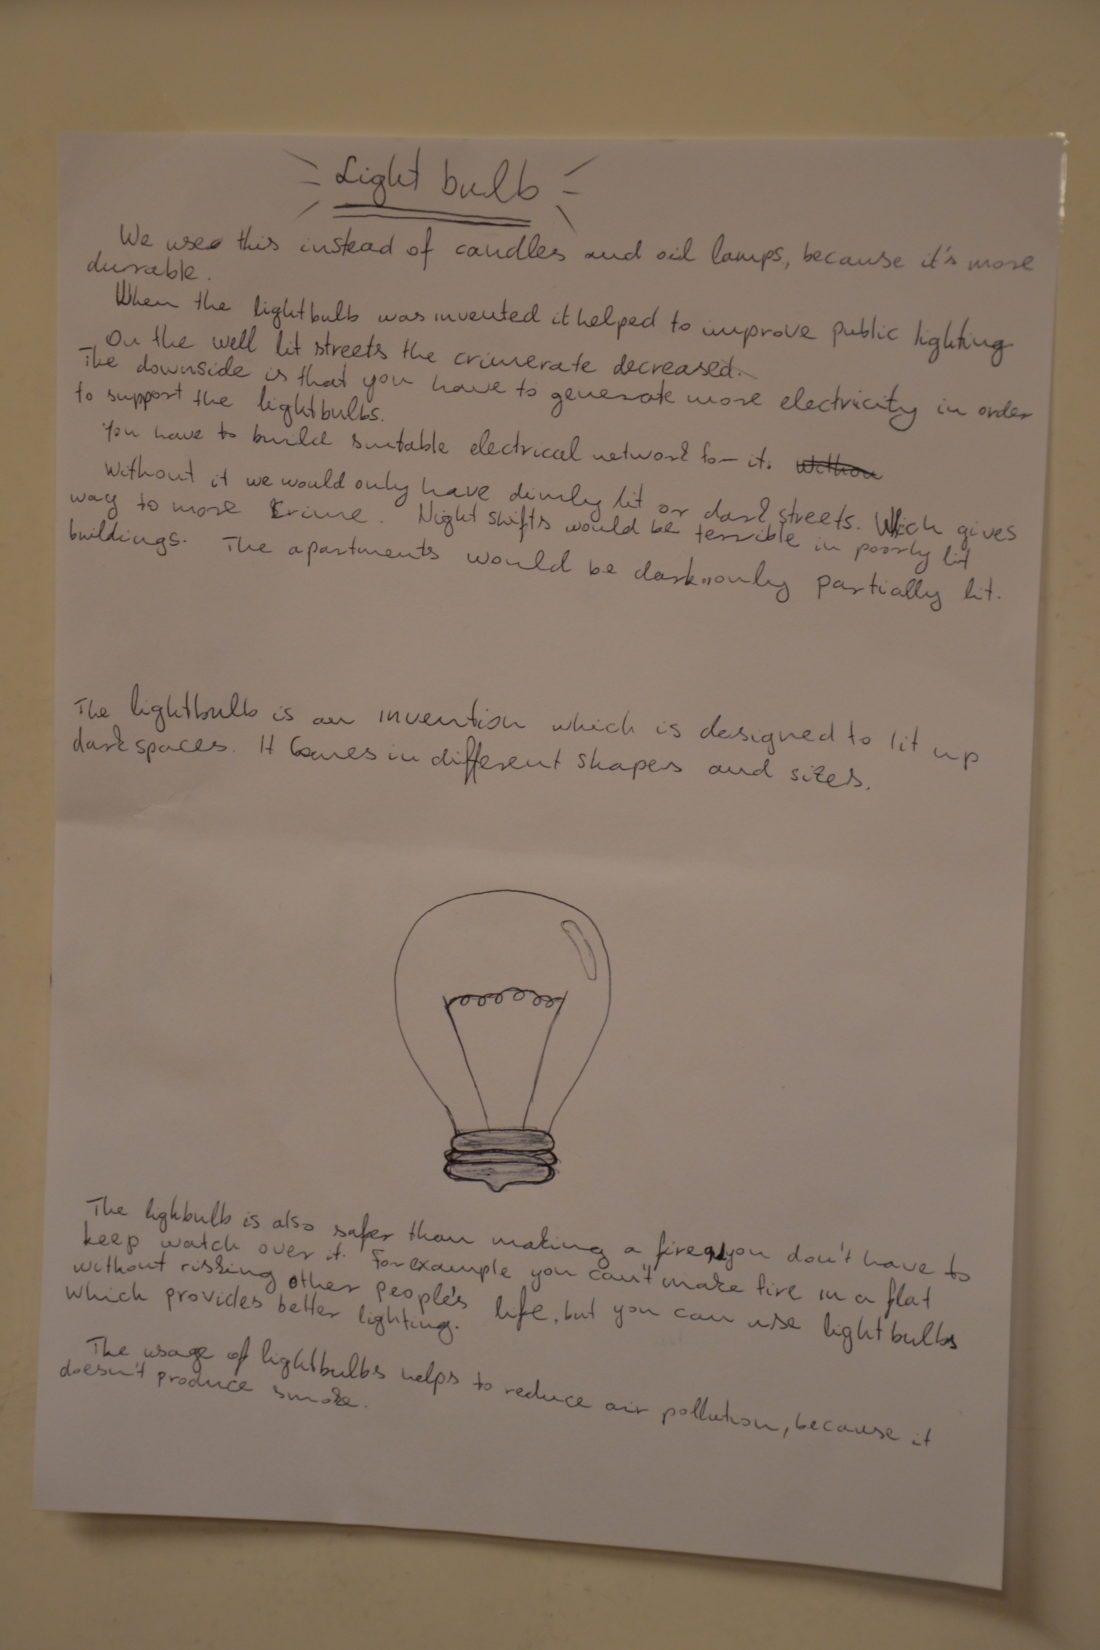 Light bulb
We use this instead of candles and oil lamps, because it's more
durable.
When the lightbulb was invented it helped to improve public lighting
On the well lit streets the crimerate decreased.
The downside is that you have to generate more electricity in order
to support the lightbulbs.
You have to build suitable electrical network for it. Withou
Without it we would only have dimly lit or dark streets. Which gives
way to more crime. Night shifts would be terrible in poorly lit
buildings. The apartments would be dark, only partially lit.
The lightbulb is an invention which is designed to lit up
dark spaces. It Comes in different shapes and sizes.
The lighbulb is also safer than making a fire, you don't have to
keep watch over it. For example you can't make fire in a flat
without risking other people's life, but you can use lightbulbs
which provides better lighting.
The usage of lightbulbs helps to reduce air pollution, because it
doesn't produce smoke.